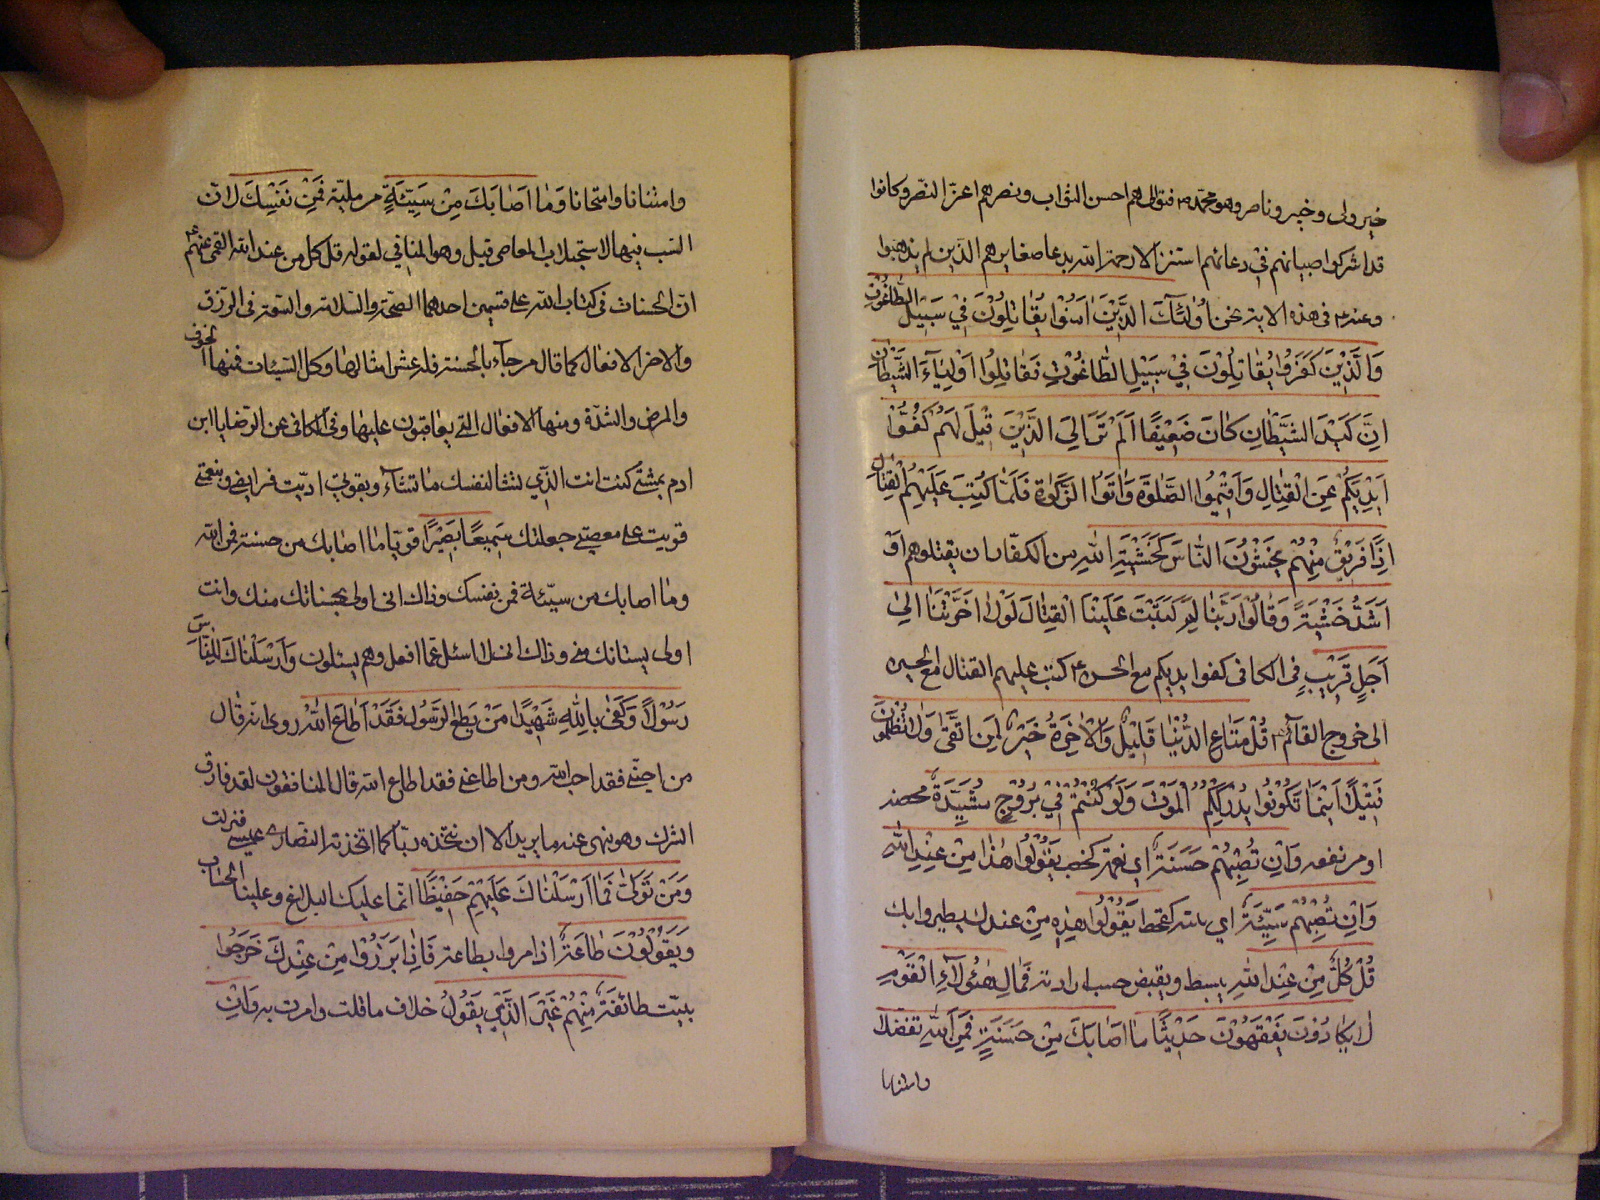 خير ولى وخير وناصر وهو محمّد ص فتولّى لهم احسن الثواب ونصرهم اعزّ النصر وكانوا
قد اشركوا صبيانهم في دعائهم استنزالا لرحمة الله بدعاء صغايرهم الذين لم يذنبوا
وعنه ع فى هذه الاية نحن اولئك اَلَّذِينَ اٰمَنُوا يُقَاتِلُونَ فِي سَبِيلِ الطَّاغُوتِ
وَالَّذِينَ كَفَرُوا يُقَاتِلُونَ فِي سَبِيلِ الطَّاغُوتِ فَقَاتِلُوا اَوْلِيَاءَ الشَّيْطَانِ
اِنَّ كَيْدَ الشَّيْطَانِ كَانَ ضَعِيفًا اَلَمْ تَرَ اِلَى الَّذِينَ قِيلَ لَهُمْ كُفُّوا
اَيْدِيَكُمْ عَنِ الْقِتَالِ وَاَقِيمُوا الصَّلٰوةَ وَاٰتُوا الزَّكٰوةَ فَلَمَّا كُتِبَ عَلَيْهِمُ الْقِتَالُ
اِذَا فَرِيقٌ مِنْهُمْ يَخْشَوْنَ النَّاسَ كَخَشْيَةِ اللهِ من الكفّار ان يقتلوهم اَوْ
اَشَدَّ خَشْيَةً وَقَالُوا رَبَّنَا لِمَ كَتَبْتَ عَلَيْنَا الْقِتَالَ لَوْلَا اَخَّرْتَنَا اِلٰى
اَجَلٍ قَرِيبٍ فى الكافى كفوا ايديكم مع الحسن ع كتب عليهم القتال مع الحسين
الى خروج القائم ع قُلْ مَتَاعُ الدُّنْيَا قَلِيلٌ وَالْاٰخِرَةُ خَيْرٌ لِمَنِ اتَّقٰى وَلَا تُظْلَمُونَ
فَتِيلًا اَيْنَمَا تَكُونُوا يُدْرِكْكُمُ الْمَوْتُ وَلَوْ كُنْتُمْ فِي بُرُوجٍ مُشَيَّدَةٍ محصنة
او مرتفعة وَاِنْ تُصِبْهُمْ حَسَنَةٌ اي نعمة كخصب يَقُولُوا هٰذَا مِنْ عِنْدِ اللهِ
وَاِنْ تُصِبْهُمْ سَيِّئَةٌ اي بلية كقحط يَقُولُوا هٰذِهِ مِنْ عِنْدِكَ يطيروا بك
قُلْ كُلٌّ مِنْ عِنْدِ اللهِ يبسط ويقبض حسب ارادته فَمَالِ هٰؤُلَاءِ الْقَوْمِ
لَا يَكَادُونَ يَفْقَهُونَ حَدِيثًا مَا اَصَابَكَ مِنْ حَسَنَةٍ فَمِنَ اللهِ تفضلا
وامتنانا
وامتنانا وامتحانا وَمَا اَصَابَكَ مِنْ سَيِّئَةٍ من بليّة فَمِنْ نَفْسِكَ لانّ
السبب فيها الاستجلاب المعاصى قيل وهو لا ينافي لقوله قل كل من عند الله القمى عنهم ع
انّ الحسنات فى كتاب الله على قسمين احدهما الصّحة والسّلامة والسّعة فى الرّزق
والاخر الافعال كما قال من جاء بالحسنة فله عشر امثالها وكل السّيئات فمنها الخوف
والمرض والشدّة ومنها الافعال التي يعاقبون عليها وفى الكافى عن الرّضا يا ابن
ادم بمشيّتي كنت انت الذّي تشاء لنفسك ما تشاء وبقوتي ادّيت فرايضي وبنعمتي
قويت على معصيتي جعلتك سَمِيعًا بَصِيرًا قويّا ما اصابك من حسنة فمن الله
وما اصابك من سيّئة فمن نفسك وذاك انى اولى بحسناتك منك وانت
اولى بسيئاتك منى وذاك انى لا اسئل عمّا افعل وهم يسئلون وَاَرْسَلْنَاكَ لِلنَّاسِ
رَسُولًا وَكَفٰى بِاللهِ شَهِيدًا مَنْ يُطِعِ الرَّسُولَ فَقَدْ اَطَاعَ اللهَ روى انه قال
من احبّني فقد احب الله ومن اطاعني فقد اطاع الله قال المنافقون لقد قارف
الشرك وهو ينهى عنه ما يريد الا ان نتخذه ربّا كما اتخذت النصارى عيسى فنزلت
وَمَنْ تَوَلّٰى فَمَا اَرْسَلْنَاكَ عَلَيْهِمْ حَفِيظًا انّما عليك البلاغ وعلينا الحساب
وَيَقُولُونَ طَاعَةٌ اذا امروا بطاعة فَاِذَا بَرَزُوا مِنْ عِنْدِكَ خَرَجُوا
بيّت طَائِفَةٌ مِنْهُمْ غَيْرَ الَّذِي يَقُولُ خلاف ما قلت وامرت به وَاِنْ